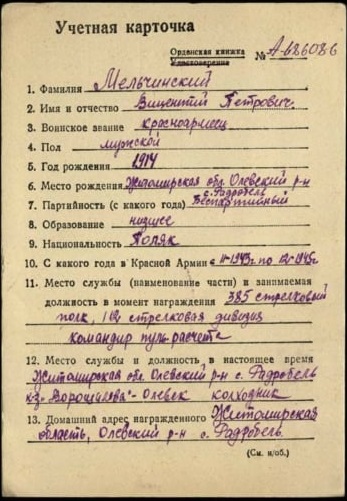 Учетная карточка
Орденская книжка
Удостоверение № А-486086
1. Фамилия Мельчинский
2. Имя и отчество Викентий Петрович.
3. Воинское звание красноармеец
4. Пол мужской
5. Год рождения 1914
6. Место рождения Житомирская обл. Олевский р-н
с. Радровель
7. Партийность (с какого года) Беспартийный
8. Образование низшее
9. Национальность Поляк
10. С какого года в Красной Армии с 1943г по 1945г
11. Место службы (наименование части) и занимаемая
должность в момент награждения 385 стрелковый
полк, 112 стрелковая дивизия
командир пульрасчета
12. Место службы и должность в настоящее время
Житомирская обл. Олевский р-н с. Радровель
к-з "Ворошилова" - Олевск колхозник
13. Домашний адрес награжденного Житомирская
область, Олевский р-н с. Радровель.
(См. н/об.)